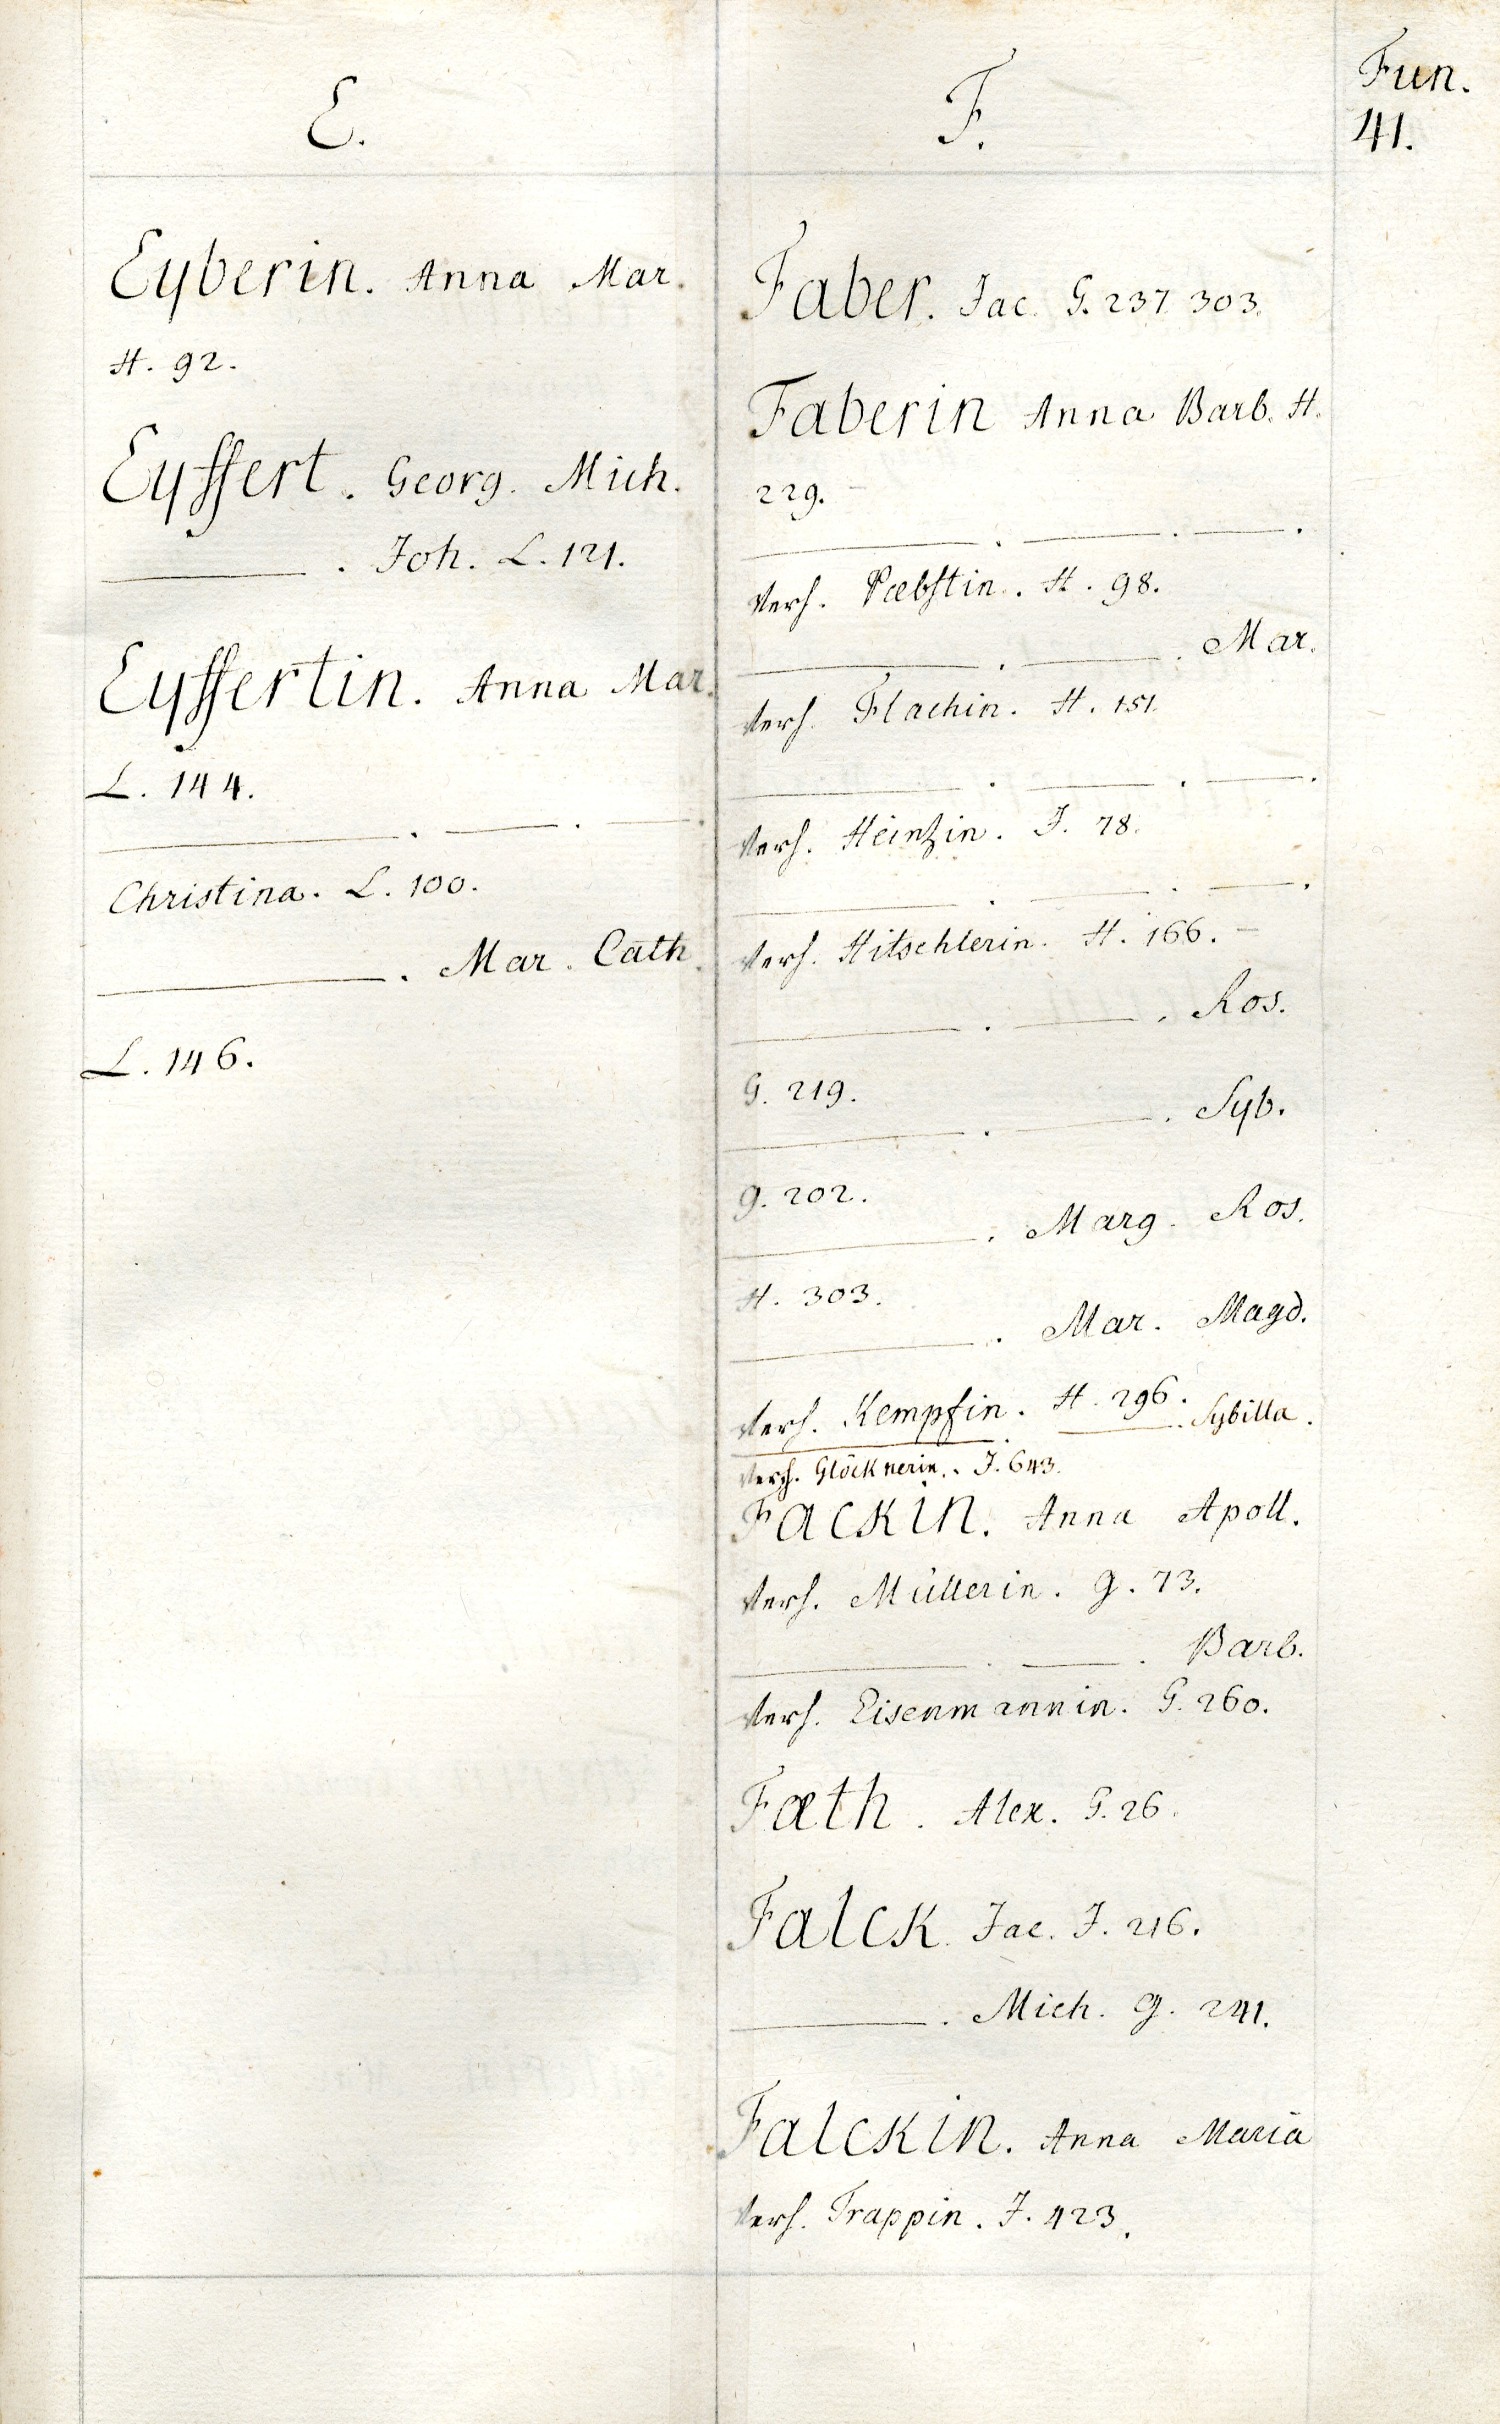 E.
Eyberin. Anna Mar.
H. 92.
Eyffert. Georg. Mich.
———. Joh. L. 121.
Eyffertin. Anna Mar.
L. 144.
———. ———. ———.
Christina. L. 100.
———. Mar. Cath.
L. 146.
F.
Faber. Jac. G. 237. 303.
Faberin Anna Barb. H.
229.
———. ———. ———.
Verh. Pæbstin. H. 98.
———. ———. Mar.
Verh. Flachin. H. 151.
———. ———. ———.
Verh. Heintzin. J. 78.
———. ———. ———.
Verh. Hitschlerin. H. 166.
———. ———. Ros.
G. 219.
———. ———. Syb.
G. 202.
———. Marg. Ros.
H. 303.
———. Mar. Magd.
Verh. Kempfin. H. 296.
———. ———. Sybilla.
Verh. Glöcknerin. J. 643.
Fackin. Anna Apoll.
Verh. Müllerin. G. 73.
———. ———. Barb.
Verh. Eisenmannin. G. 260.
Fæth. Alex. G. 26.
Falck. Jac. J. 216.
———. Mich. G. 241.
Falckin. Anna Maria
Verh. Trappin. J. 423.
Fun.
41.